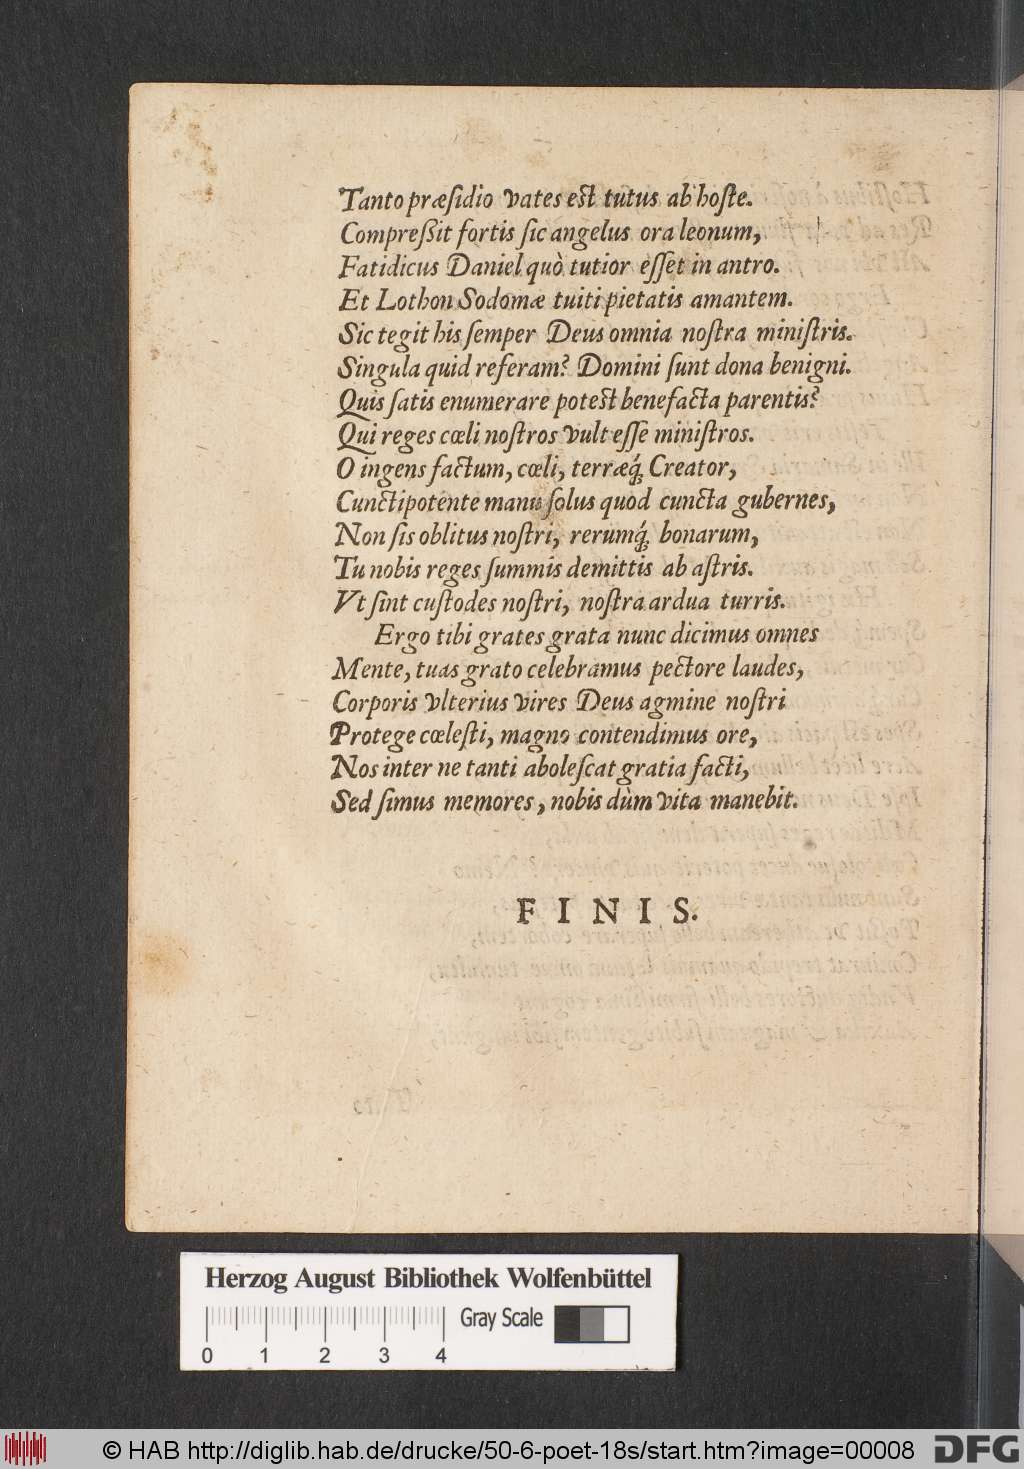 Tanto præſidio vates eſt tutus ab hoſte.
Compreßit fortis ſic angelus ora leonum,
Fatidicus Daniel quò tutior eſſet in antro.
Et Lothon Sodomæ tuiti pietatis amantem.
Sic tegit his ſemper Deus omnia noſtra miniſtris.
Singula quid referam? Domini ſunt dona benigni.
Quis ſatis enumerare poteſt benefacta parentis?
Qui reges cœli noſtros vult eſſe miniſtros.
O ingens factum, cœli, terræq́; Creator,
Cunctipotente manu ſolus quod cuncta gubernes,
Non ſis oblitus noſtri, rerumq́; bonarum,
Tu nobis reges ſummis demittis ab aſtris.
Vt ſint cuſtodes noſtri, noſtra ardua turris.
Ergo tibi grates grata nunc dicimus omnes
Mente, tuas grato celebramus pectore laudes,
Corporis vlterius vires Deus agmine noſtri
Protege cœleſti, magno contendimus ore,
Nos inter ne tanti aboleſcat gratia facti,
Sed ſimus memores, nobis dùm vita manebit.
FINIS.
Herzog August Bibliothek Wolfenbüttel
Gray Scale
0 1 2 3 4
© HAB http://diglib.hab.de/drucke/50-6-poet-18s/start.htm?image=00008
DFG